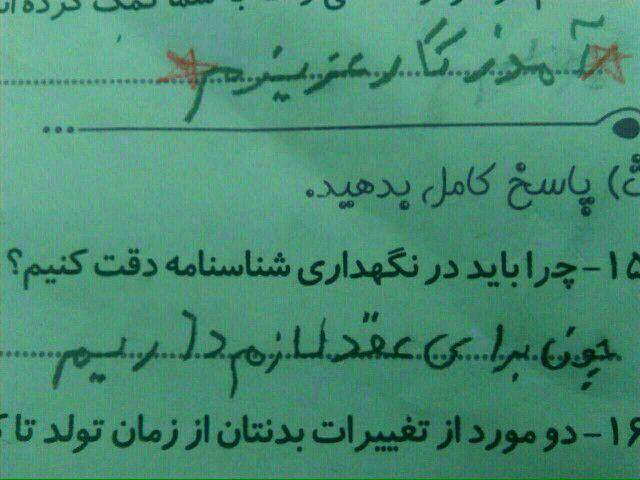 شما کمک کرده اند
آموزگار عزیزم
ث) پاسخ کامل بدهید.
۱۵- چرا باید در نگهداری شناسنامه دقت کنیم؟
چون برای عقد لازم داریم
۱۶- دو مورد از تغییرات بدنتان از زمان تولد تا